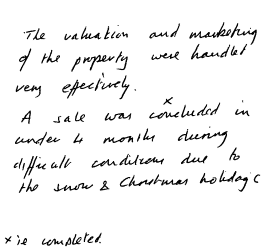 The valuation and marketing
of the property were handled
very effectively.
x
A sale was concluded in
under 4 months during
difficult conditions due to
the snow & Christmas holidays
x ie completed.